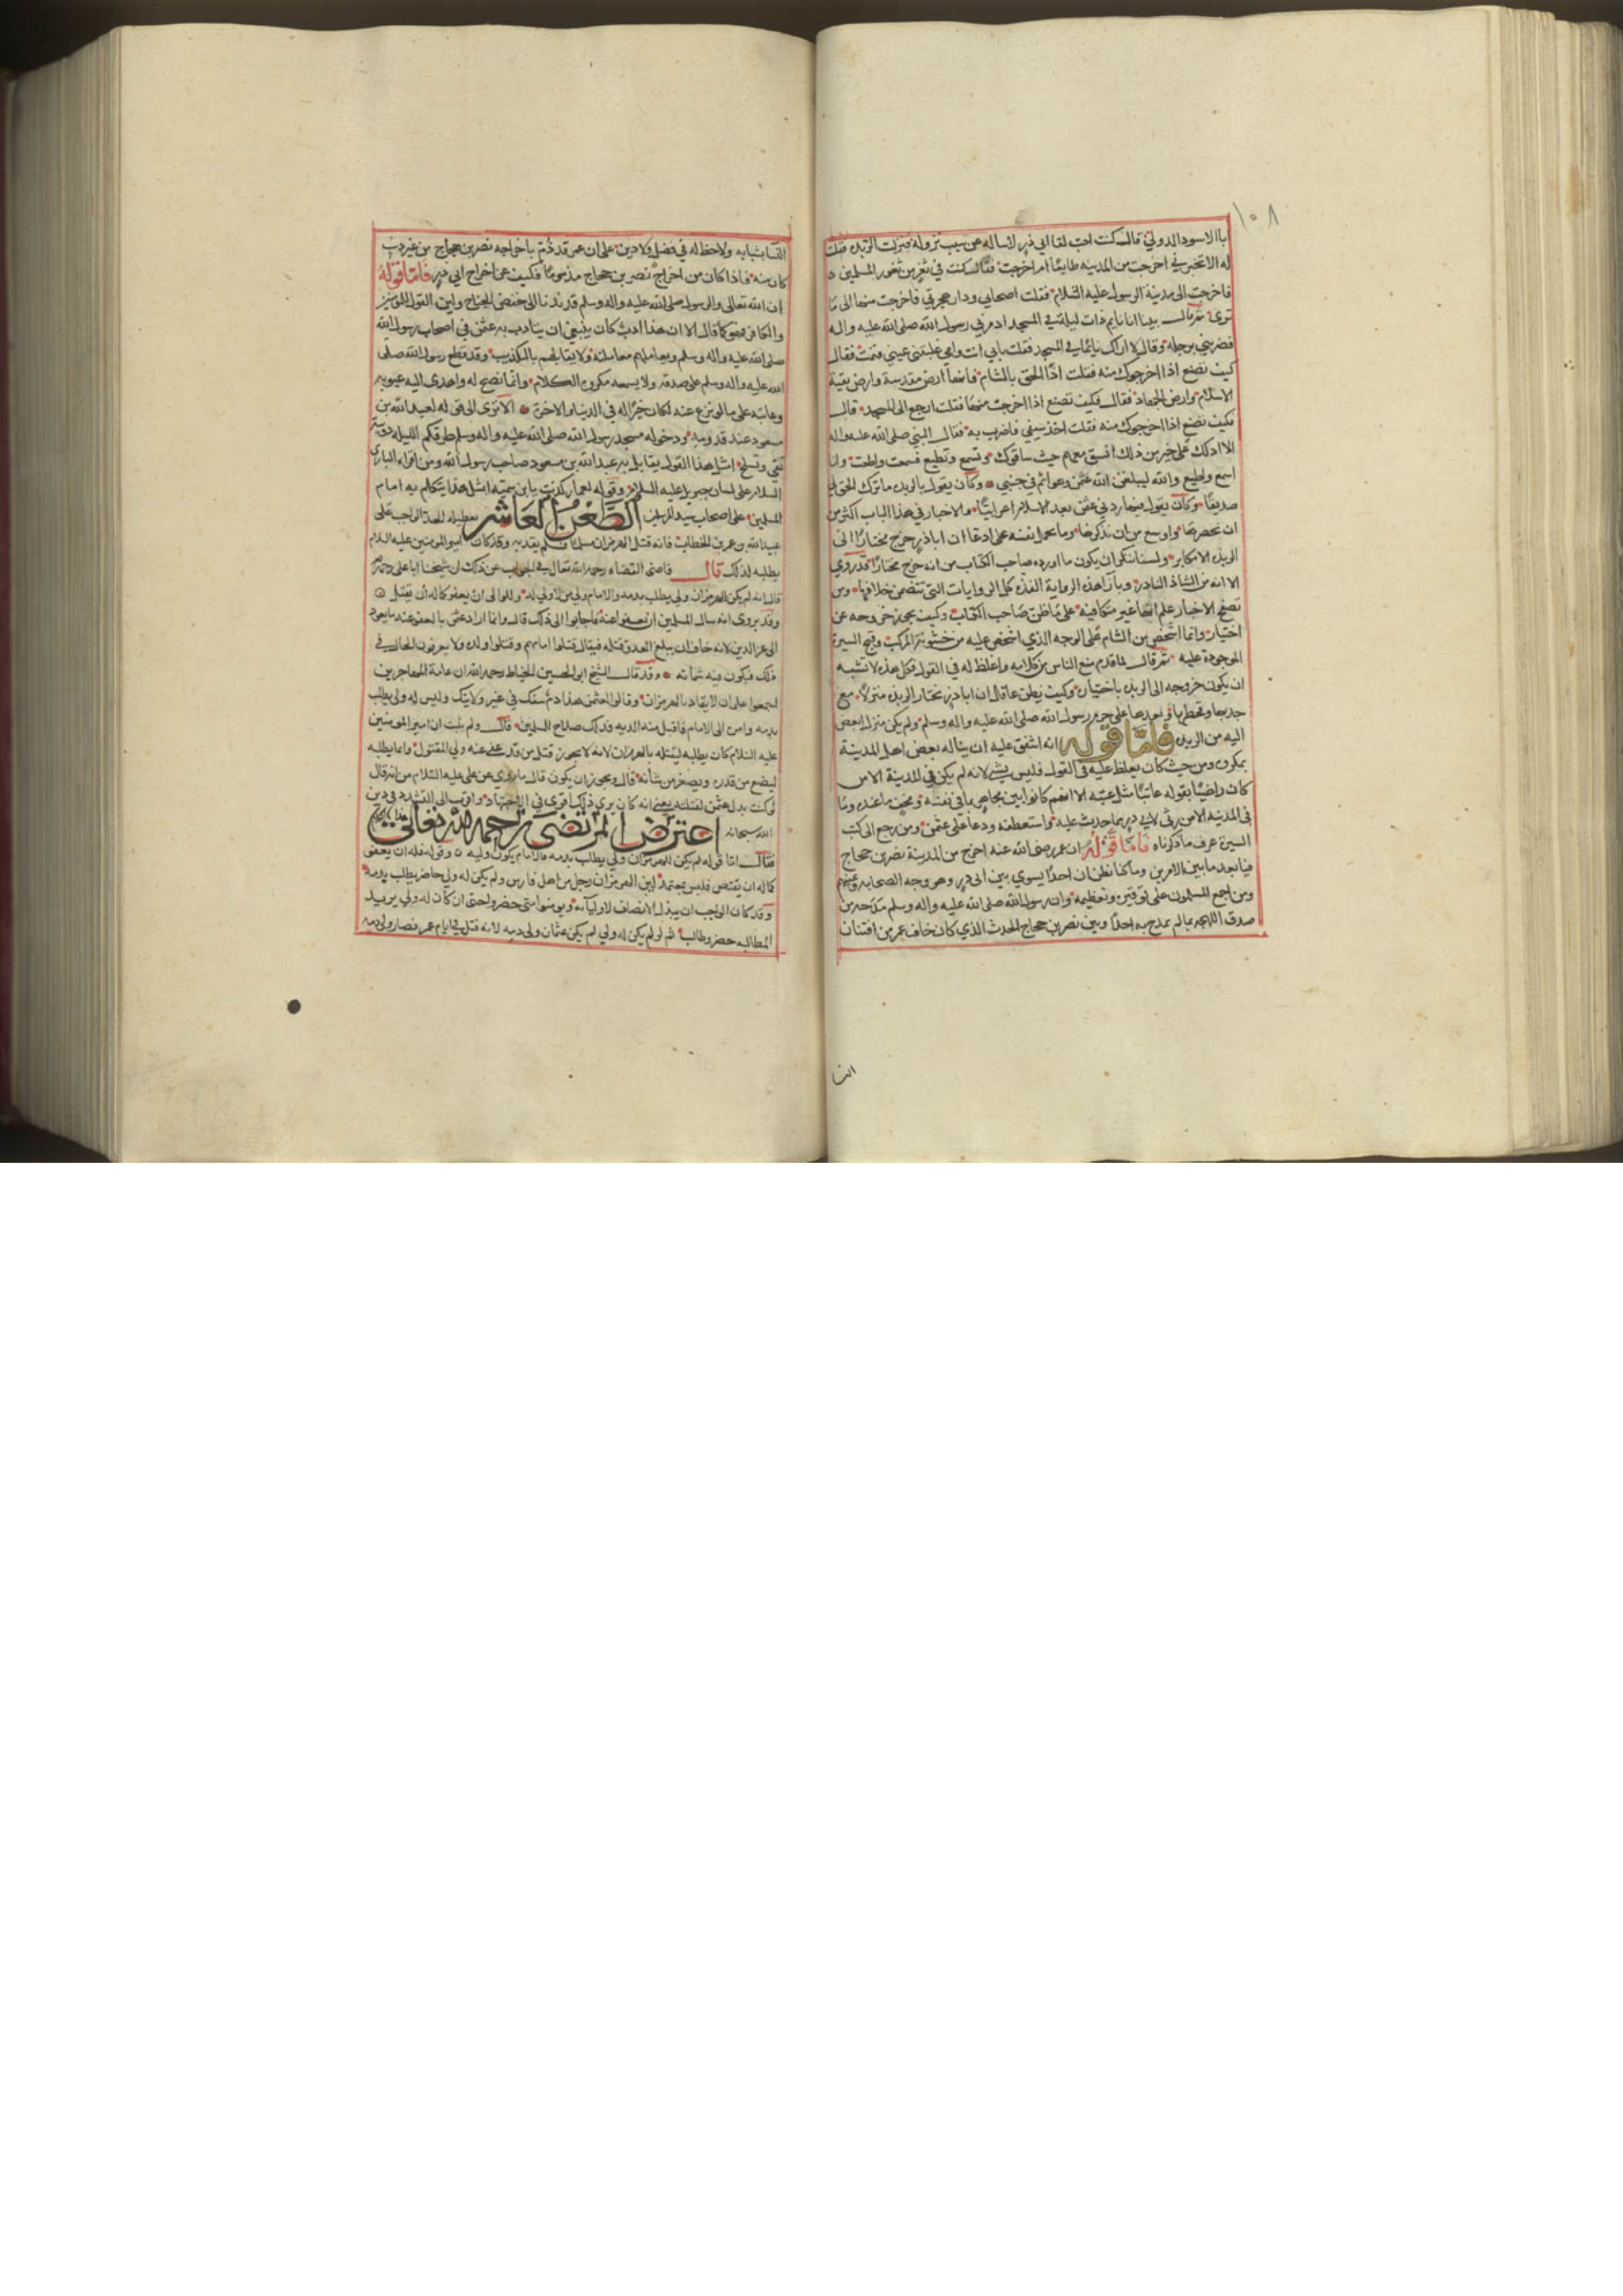 ١٠٨
با الاسود الدولي قال كنت احب لقا ابي ذر لاساله عن سبب نزوله فنزلت الربذه فقلت
له الا تخبرني اخرجت من المدينه طايعا ام اخرجت فقال كنت في ثغر من ثغور المسلمين
فاخرجت الى مدينة الرسول عليه السلام فقلت اصحابي ودار هجرتي فاخرجت منها الى ما
ترى ثم قال بينا انا نايم ذات ليلة في المسجد اذ مر بي رسول الله صلى الله عليه واله
فضربني برجله وقال لا اراك نائما في المسجد فقلت بابي انت وامي غلبتني عيني فنمت فقال
كيف تصنع اذا اخرجوك منه فقلت اذا الحق بالشام فانها ارض مقدسة وارض بقية
الاسلام وارض الجهاد فقال فكيف تصنع اذا اخرجت منها فقلت ارجع الى المسجد قال
فكيف تصنع اذا اخرجوك منه فقلت اخذ سيفي فاضرب به فقال النبي صلى الله عليه واله
الا ادلك على خير من ذلك انسق معهم حيث ساقوك وتسمع وتطيع فسمعت واطعت وانا
اسمع واطيع والله ليلقين الله عثمن وهو اثم في جنبي وكان يقول بالربذه ما ترك الحق لي
صديقا وكان يقول فيها ردني عثمن بعد الاسلام اعرابيا والاخبار في هذا الباب اكثر من
ان نحصرها واوسع من ان نذكرها وما يحمل نفسه على ادعا ان اباذر خرج مختارا الى
الربذه الا مكابر ولسنا ننكر ان يكون ما اورده صاحب الكتاب من انه خرج مختارا قد روي
الا انه من الشاذ النادر وبازا هذه الرواية الفذه كل الروايات التي تتضمن خلافها ومن
تصفح الاخبار علم انها غير متكافيه على ما ظن صاحب الكتاب وكيف يجوز خروجه عن
اختيار وانما اشخص من الشام على الوجه الذي اشخص عليه من خشونة المركب وقبح السيرة
الموجودة عليه ثم قال لما قدم منع الناس من كلامه واغلظ له في القول فكل هذه لا تشبه
ان يكون خروجه الى الربذه باختياره وكيف يظن عاقل ان اباذر يختار الربذه منزلا مع
جدبها وقحطها وبعدها على حرم رسول الله صلى الله عليه واله وسلم ولم يكن منزل ابغض
اليه من الربذه فاما قوله انه اشفق عليه ان يناله بعض اهل المدينة
بمكروه ومن حيث كان يغلظ عليه في القول فليس بشي لانه لم يكن في المدينة الا من
كان راضيا بقوله عاتبا مثل عتبه الا انهم كانوا بين مجاهر بما في نفسه ومخف ما عنده وما
في المدينه الا من رثى لابي ذر بما حدث عليه واستعطفه ودعا على عثمن ومن رجع الى كتب
السيرة عرف ما ذكرناه فاما قوله ان عمر رضي الله عنه اخرج من المدينة نصر بن حجاج
فيا بعد ما بين الامرين وما كنا نظن ان احدا يسوي بين ابي ذر وهو وجه الصحابه وعينهم
ومن اجمع المسلمون على توقيره وتعظيمه وان رسول الله صلى الله عليه واله وسلم مدحه من
صدق اللهجه بما لم يمدح به احدا وبين نصر بن حجاج الحدث الذي كان خاف عمر من افتنان
النسا بشبابه ولا حظ له في فضل ولا دين على ان عمر قد ذم باخراجه نصر بن حجاج من غير ذنب
كان منه فاذا كان من اخراج نصر بن حجاج مذموما فكيف عن اخراج ابي ذر فاما قوله
ان الله تعالى والرسول صلى الله عليه واله وسلم قد ندبنا الى خفض الجناح ولين القول للمؤمن
والكافر فهو كما قال الا ان هذا ادب كان ينبغي ان يتادب به عثمن في اصحاب رسول الله
صلى الله عليه واله وسلم ويعاملهم معاملته ولا يقابلهم بالتكذيب وقد قطع رسول الله صلى
الله عليه واله وسلم على صدقه ولا يسمعه مكروه الكلام وانما نصح له واهدى اليه عيوبه
وعاتبه على ما لو نزع عنه لكان خيرا له في الدنيا والاخرة الا ترى الى قوله لعبد الله بن
مسعود عند قدومه ودخوله مسجد رسول الله صلى الله عليه واله وسلم طرقتكم الليله دويبه
تقي وتسلح امثل هذا القول يقابل به عبد الله بن مسعود صاحب رسول الله ومن اقراه الباري
السلام على لسان جبريل عليه السلام وقوله لعمار كذبت يا بن سميه امثل هذا يتكلم به امام
المسلمين على اصحاب سيد المرسلين الطعن العاشر تعطيله للحد الواجب على
عبيد الله بن عمر بن الخطاب فانه قتل الهرمزان مسلما فلم يقده به وقد كان امير المومنين عليه السلام
يطلبه لذلك قال قاضي القضاه رحمه الله تعالى في الجواب عن ذلك ان شيخنا ابا علي رحمه الله
قال انه لم يكن للهرمزان ولي يطلب بدمه والامام ولي من لا ولي له وللولي ان يعفو كما له ان يقتل
وقد يروى انه سال المسلمين ان يعفوا عنه فاجابوا الى ذلك قال وانما اراد عثمن بالعفو عنه ما يعود
الى عز الدين لانه خاف ان يبلغ العدو قتله فيقال قتلوا امامهم وقتلوا ولده ولا يعرفون الحال في
ذلك فيكون فيه شماته وقد قال الشيخ ابو الحسين الخياط رحمه الله ان عامة المهاجرين
اجمعوا على ان لا يقاد بالهرمزان وقالوا لعثمن هذا دم سفك في غير ولايتك وليس له ولي يطلب
بدمه وامره الى الامام فاقبل منه الديه فذلك صلاح المسلمين قال ولم يثبت ان امير المومنين
عليه السلام كان يطلبه ليقتله بالهرمزان لانه لا يجوز قتل من قد عفى عنه ولي المقتول وانما يطلبه
ليضع من قدره ويصغر من شانه قال ويجوز ان يكون قال ما روي عن علي عليه السلام من انه قال
لو كنت بدل عثمن لقتلته يعني انه كان يرى ذلك اقوى في الاجتهاد واقرب الى التشدد في دين
الله سبحانه اعترض المرتضى رحمه الله تعالى
فقال اما قوله لم يكن للهرمزان ولي يطلب بدمه فالامام يكون وليه وقوله فله ان يعفو
كما له ان يقتص فليس بمعتمد لان الهرمزان رجل من اهل فارس ولم يكن له ولي حاضر يطلب بدمه
وقد كان الواجب ان يبذل الانصاف لاوليائه ويومنوا متى حضروا حتى ان كان له ولي يريد
المطالبه حضر وطالب ثم لو لم يكن له ولي لم يكن عثمان ولي دمه لانه قتل في ايام عمر فصار ولي دمه